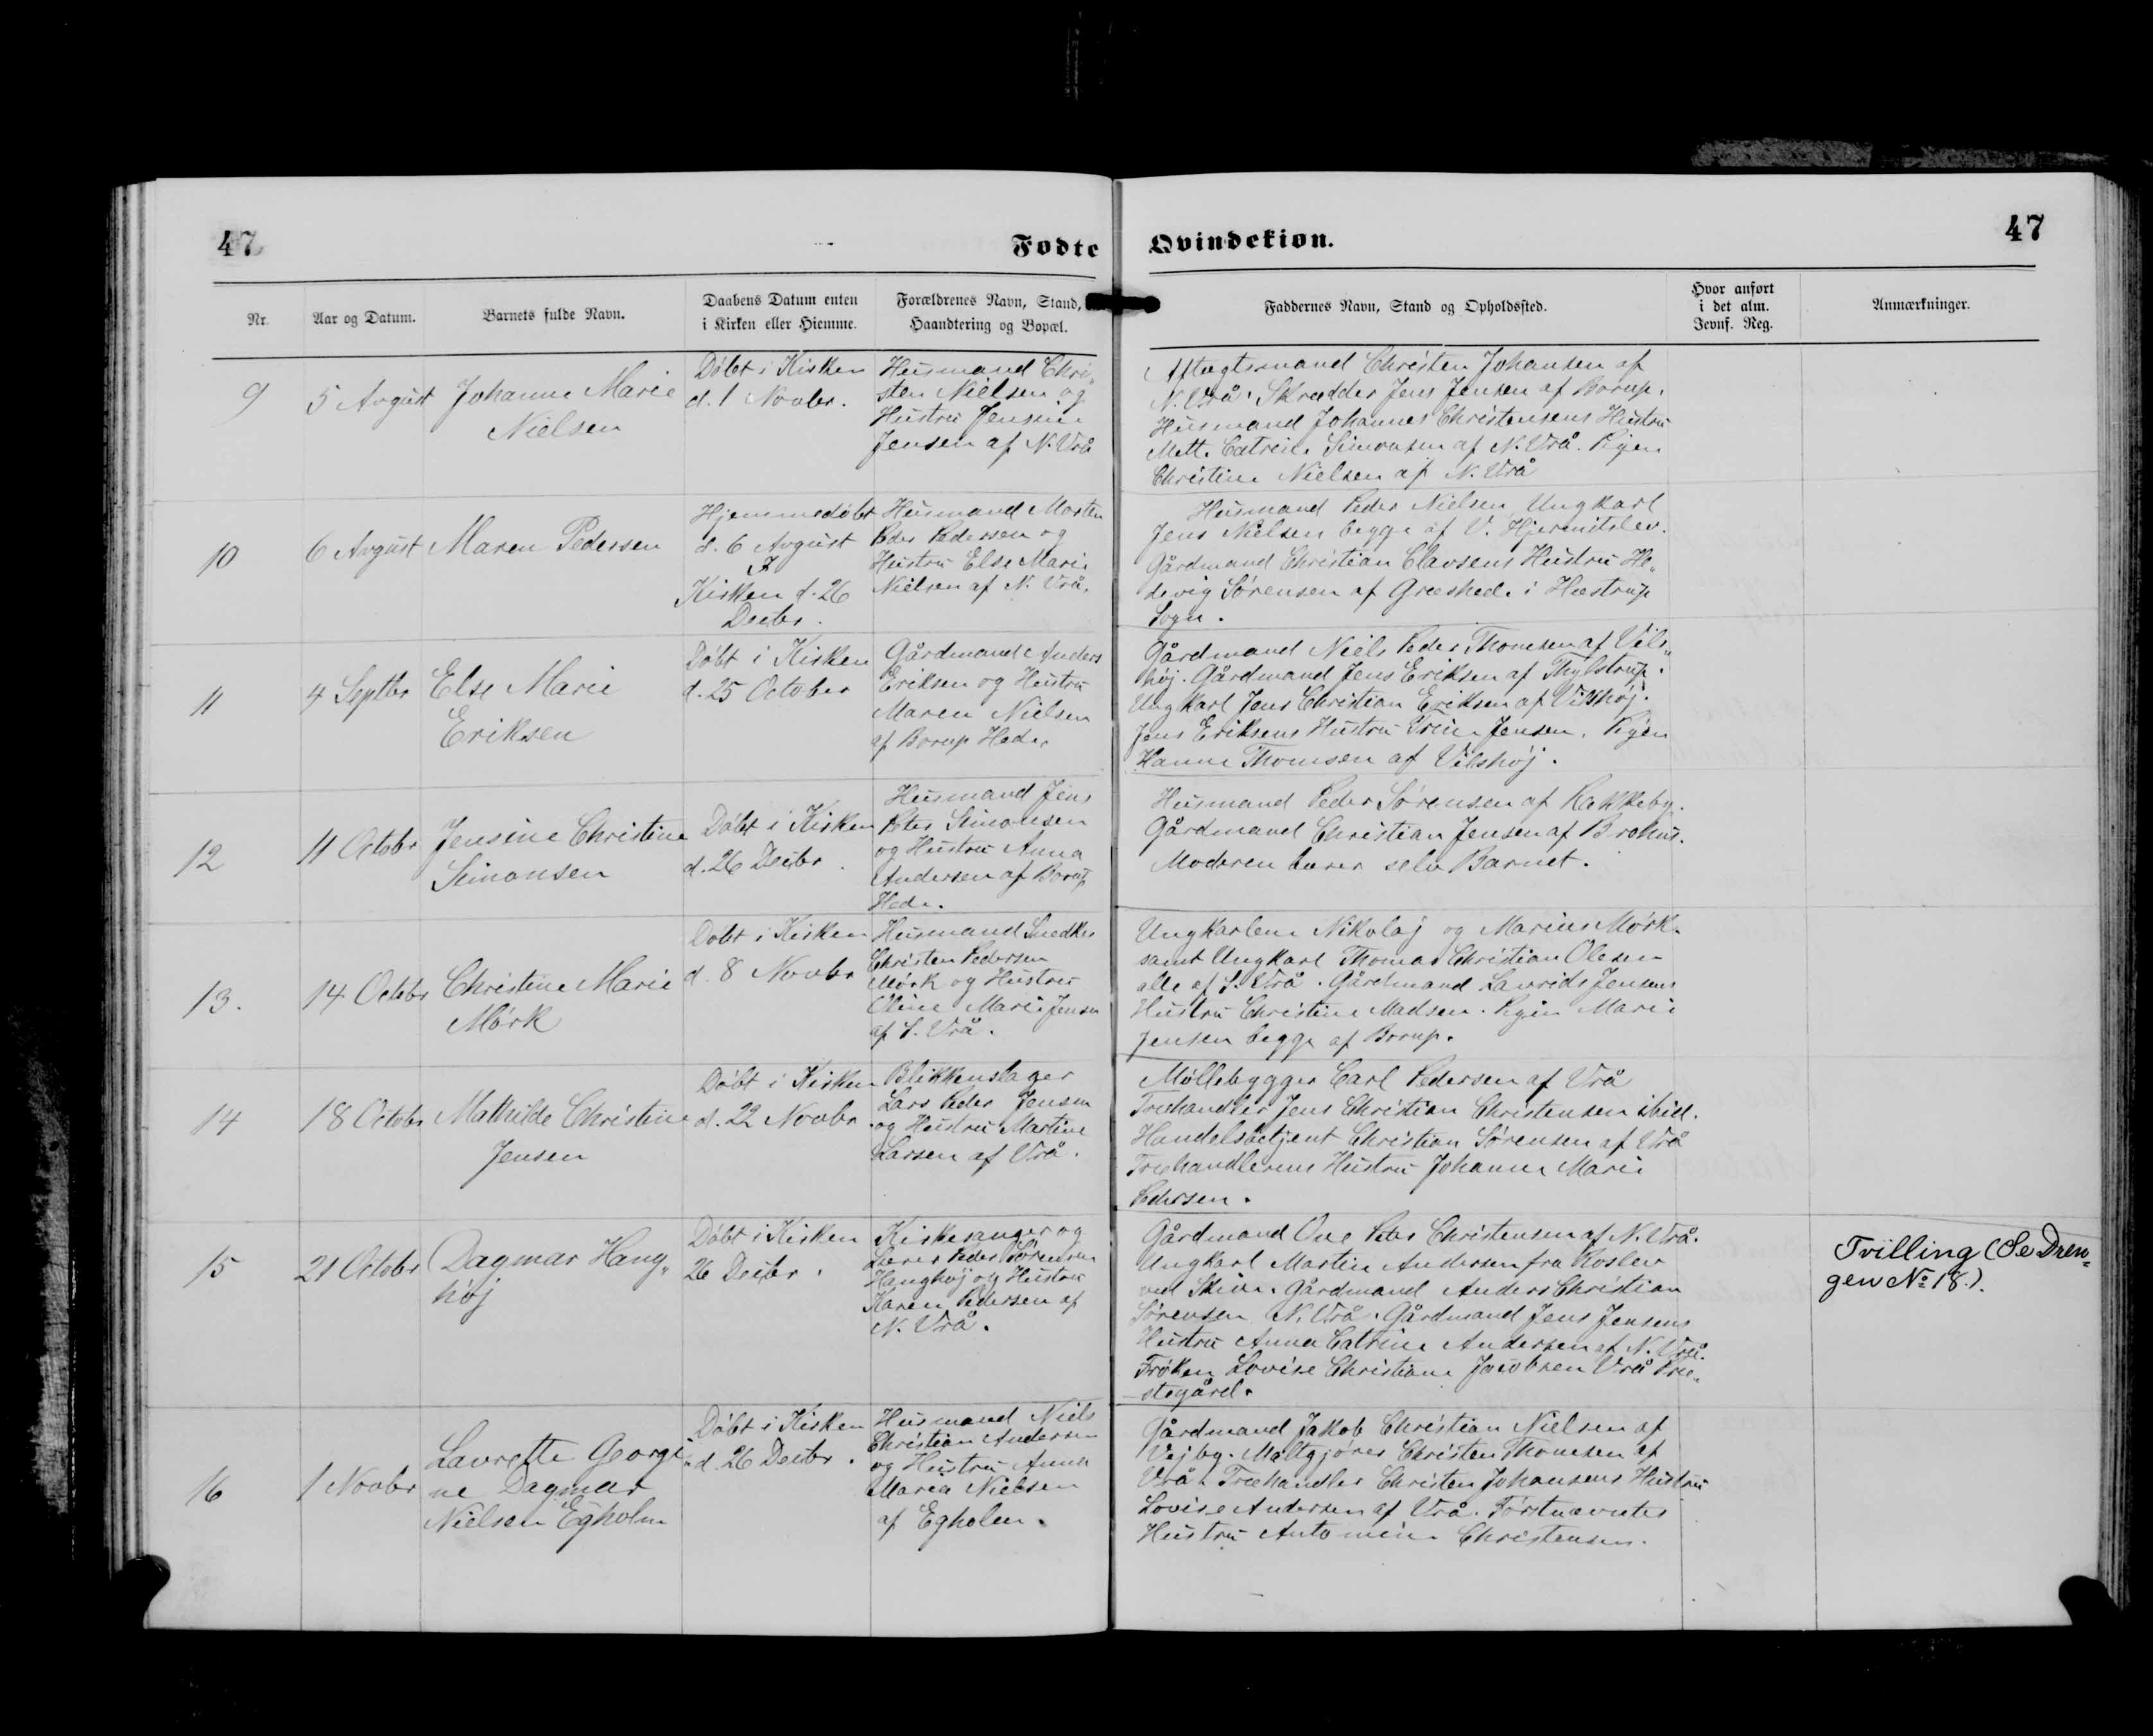 47
Fødte
Qvindekiøn.
47
Nr.
Aar og Datum.
Barnets fulde Navn.
Daabens Datum enten
i Kirken eller Hiemme.
Forældrenes Navn, Stand,
Haandtering og Bopæl.
Faddernes Navn, Stand og Opholdssted.
Hvor anført
i det alm.
Jevnf. Reg.
Anmærkninger.
9
5 Avgust
Johanne Marie
Nielsen
Döbt i Kirken
d. 1 Novbr.
Husmand Chri„
sten Nielsen og
Hustru Jensine
Jensen af N. Vrå
Aftægtsmand Christen Johansen af
N. Vrå. Skrædder Jens Jensen af Borup.
Husmand Johannes Christensens Hustru
Mette Catrine Simonsen af N. Vrå. Pigen
Christine Nielsen af N. Vrå
10
6 Avgust
Maren Pedersen
Hjemmedöbt
d. 6 Avgust
I
Kirken d. 26
Decbr.
Husmand Morten
Peder Pedersen og
Hustru Else Marie
Nielsen af N. Vrå.
Husmand Peder Nielsen, Ungkarl
Jens Nielsen begge af V. Hjermitslev.
Gårdmand Christian Clavsens Hustru He„
devig Sörensen af Græshede i Hæstrup
Sogn.
11
4 Septbr
Else Marie
Eriksen
Döbt i Kirken
d. 25 October
Gårdmand Anders
Eriksen og Hustru
Maren Nielsen
af Borup Hede.
Gårdmand Niels Peder Thomsen af Vils„
höj. Gårdmand Jens Eriksen af Thylstrup.
Ungkarl Jens Christian Eriksen af Vilshöj.
Jens Eriksens Hustru Trine Jensen. Pigen
Hanne Thomsen af Vilshöj.
12
11 Octobr
Jensine Christine
Simonsen
Döbt i Kirken
d. 26 Decbr.
Husmand Jens
Peter Simonsen
og Hustru Anna
Andersen af Borup
Hede.
Husmand Peder Sörensen af Rakkeby.
Gårdmand Christian Jensen af Brohus.
Moderen bærer selv Barnet.
13.
14 Octobr
Christine Marie
Mörk
Döbt i Kirken
d. 8 Novbr
Husmand Snedker
Christen Pedersen
Mörk og Hustru
Oline Marie Jensen
af S. Vrå.
Ungkarlene Nikolaj og Marius Mörk.
samt Ungkarl Thomas Christian Olesen
alle af S. Vrå. Gårdmand Lavrids Jensens
Hustru Christine Madsen. Pigen Marie
Jensen begge af Borup.
14
18 Octobr
Mathilde Christine
Jensen
Döbt i Kirken
d. 22 Novbr.
Blikkenslager
Lars Peder Jensen
og Hustru Martine
Larsen af Vrå.
Möllebygger Carl Pedersen af Vrå
Træhandler Jens Christian Christensen ibid.
Handelsbetjent Christian Sörensen af Vrå
Træhandlerens Hustru Johanne Marie
Pedersen.
15
21 Octobr
Dagmar Hang„
höj
Döbt i Kirken
26 Decbr.
Kirkesanger og
Lærer Peder Sörensen
Hanghöj og Hustru
Karen Pedersen af
N. Vrå.
Gårdmand Ove Peter Christensen af N. Vrå.
Ungkarl Martin Andersen fra Roslev
ved Skive. Gårdmand Anders Christian
Sörensen N. Vrå. Gårdmand Jens Jensens
Hustru Anna Catrine Andersen af N. Vrå.
Fröken Lovise Christiane Jacobsen Vrå Præ„
stegård.
Tvilling (Se Dren„
gen No 18.).
16
1 Novbr
Lavrette Georgi„
ne Dagmar
Nielsen Egholm
Döbt i Kirken
d. 26 Decbr.
Husmand Niels
Christian Andersen
og Hustru Anna
Maria Nielsen
af Egholm.
Gårdmand Jakob Christian Nielsen af
Vejby. Maltgjörer Christen Thomsen af
Vrå. Træhandler Christen Johansens Hustru
Lovise Andersen af Vrå. Förstnævntes
Hustru Antomine Christensen.